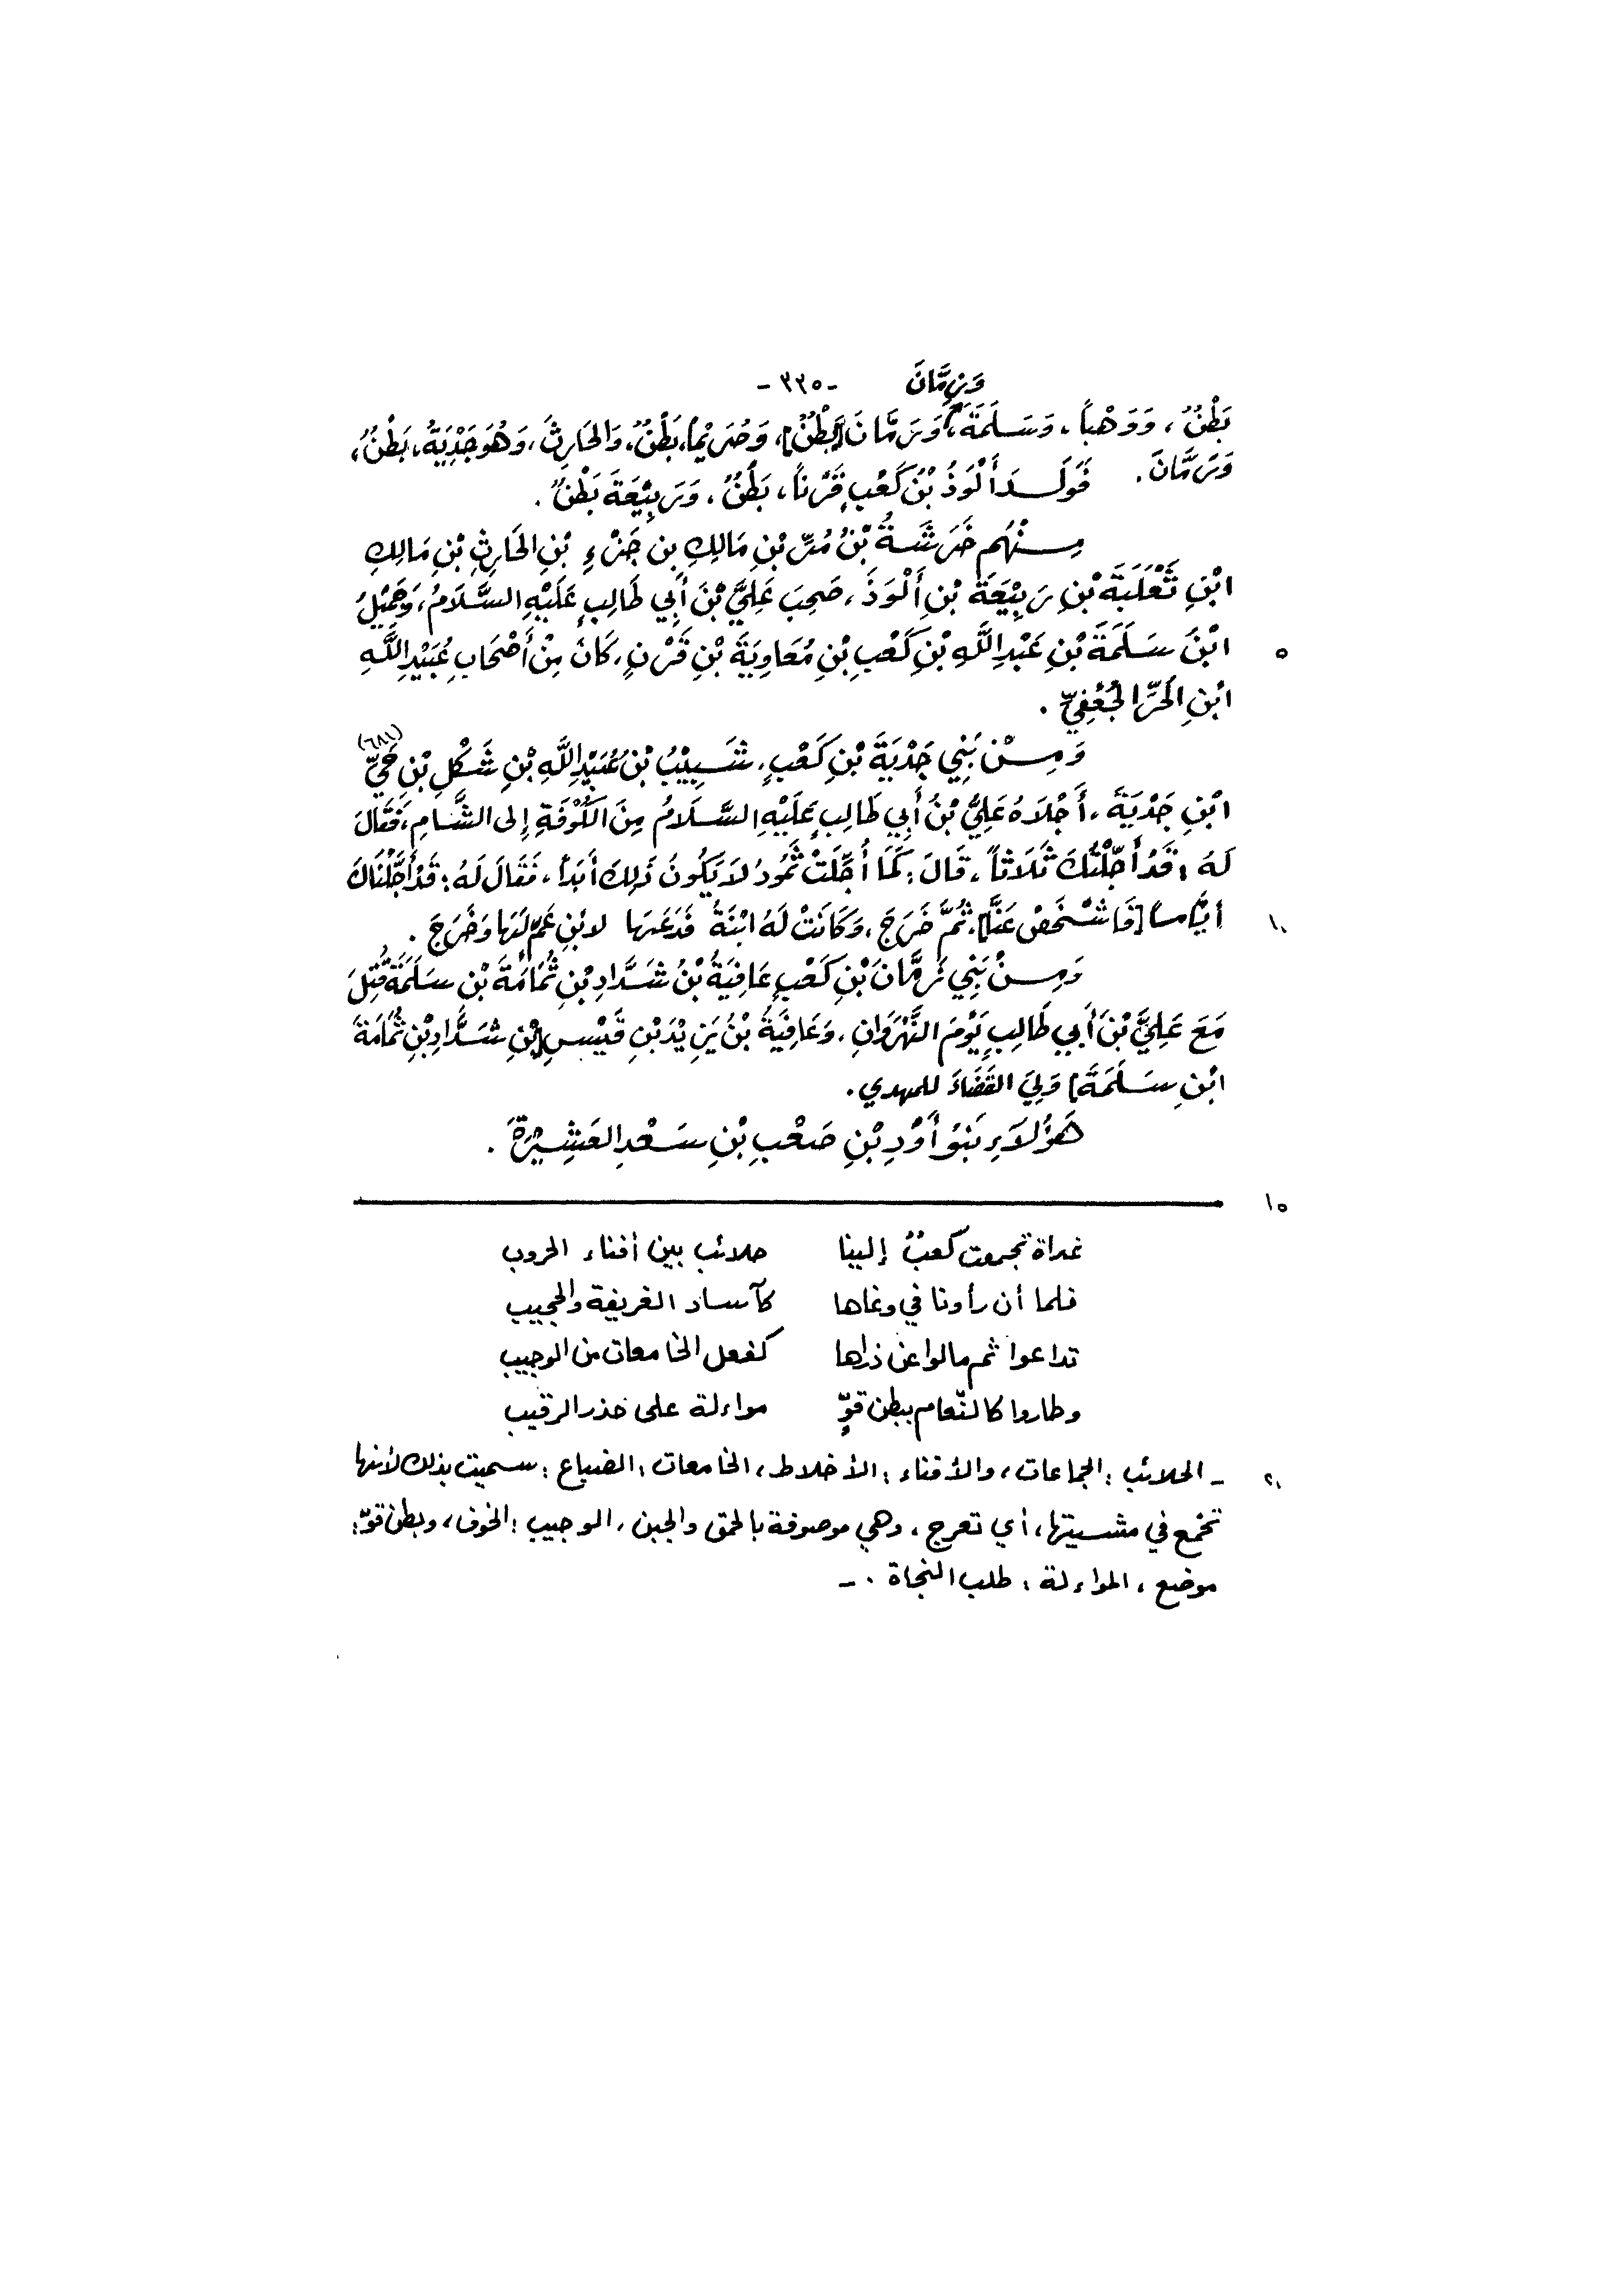 وَزِمَّانَ -٣٣٥-
بَطْنٌ، وَوَهْباً، وَسَلَمَةَ، وَزِمَّانَ [بَطْنٌ]، وَصُرَيْماً، بَطْنٌ، وَالحَارِثَ، وَهُوَ جَدْيَةُ، بَطْنٌ،
وَزِمَّانَ. فَوَلَدَ أَلْوَذُ بْنُ كَعْبٍ قَرْناً، بَطْنٌ، وَرَبِيْعَةَ بَطْنٌ.
مِنْهُم خَرَشَةُ بْنُ مُرِّ بْنِ مَالِكِ بنِ جَزْءِ بْنِ الحَارِثِ بْنِ مَالِكِ
ابْنِ ثَعْلَبَةَ بْنِ رَبِيْعَةَ بْنِ أَلْوَذَ، صَحِبَ عَلِيَّ بْنَ أَبِي طَالِبٍ عَلَيْهِ السَّلَامُ، وَجَمِيْلُ
٥ ابْنُ سَلَمَةَ بْنِ عَبْدِ اللَّهِ بْنِ كَعْبِ بْنِ مُعَاوِيَةَ بْنِ قَرْنٍ، كَانَ مِنْ أَصْحَابِ عُبَيْدِ اللَّهِ
ابْنِ الحُرِّ الجُعْفِيِّ.
وَمِنْ بَنِي جَدْيَةَ بْنِ كَعْبٍ، شَبِيْبُ بْنُ عُبَيْدِ اللَّهِ بْنِ شَكْلِ بْنِ حَيِّ (٦٨١)
ابْنِ جَدْيَةَ، أَجْلَاهُ عَلِيُّ بْنُ أَبِي طَالِبٍ عَلَيْهِ السَّلَامُ مِنَ الكُوْفَةِ إِلى الشَّامِ، فَقَالَ
لَهُ: قَدْ أَجَّلْتُكَ ثَلَاثاً، قَالَ: كَمَا أُجِّلَتْ ثَمُودُ لَا يَكُونُ ذَلِكَ أَبَداً، فَقَالَ لَهُ: قَدْ أَجَّلْنَاكَ
١٠ أَيَّاماً [فَاشْخَصْ عَنَّا]، ثُمَّ خَرَجَ، وَكَانَتْ لَهُ ابْنَةُ فَدَعَهَا لابْنِ عَمٍّ لَهَا وَخَرَجَ.
وَمِنْ بَنِي زِمَّانَ بْنِ كَعْبٍ عَافِيَةُ بْنُ شَدَّادِ بْنِ ثُمَامَةَ بْنِ سَلَمَةَ قُتِلَ
مَعَ عَلِيِّ بْنِ أَبِي طَالِبٍ يَوْمَ النَّهْرَوَانِ، وَعَافِيَةُ بْنُ يَزِيْدَ بْنِ قَيْسِ [بْنِ شَدَّادِ بْنِ ثُمَامَةَ
ابْنِ سَلَمَةَ] وَلِيَ القَضَاءَ للمهدي.
هَؤُلَاءِ بَنُو أَوْدِ بْنِ صَعْبِ بْنِ سَعْدِ العَشِيْرَةِ.
١٥
غداة تجمعت كعبٌ إلينا حلائب بين أفناء الحروب
فلما أن رأونا في وغاها كآساد الغريفة والحجيب
تداعوا ثم مالوا عن ذراها كفعل الخامعات من الوجيب
وطاروا كالنّعام ببطن قوٍّ مواءلة على حذر الرقيب
٢٠ ـ الحلائب: الجماعات، والأفناء: الأخلاط، الخامعات: الضباع: سميت بذلك لأنها
تخمع في مشيتها، أي تعرج، وهي موصوفة بالحمق والجبن، الوجيب: الخوف، وبطن قوّ:
موضع، المواءلة: طلب النجاة. ـ